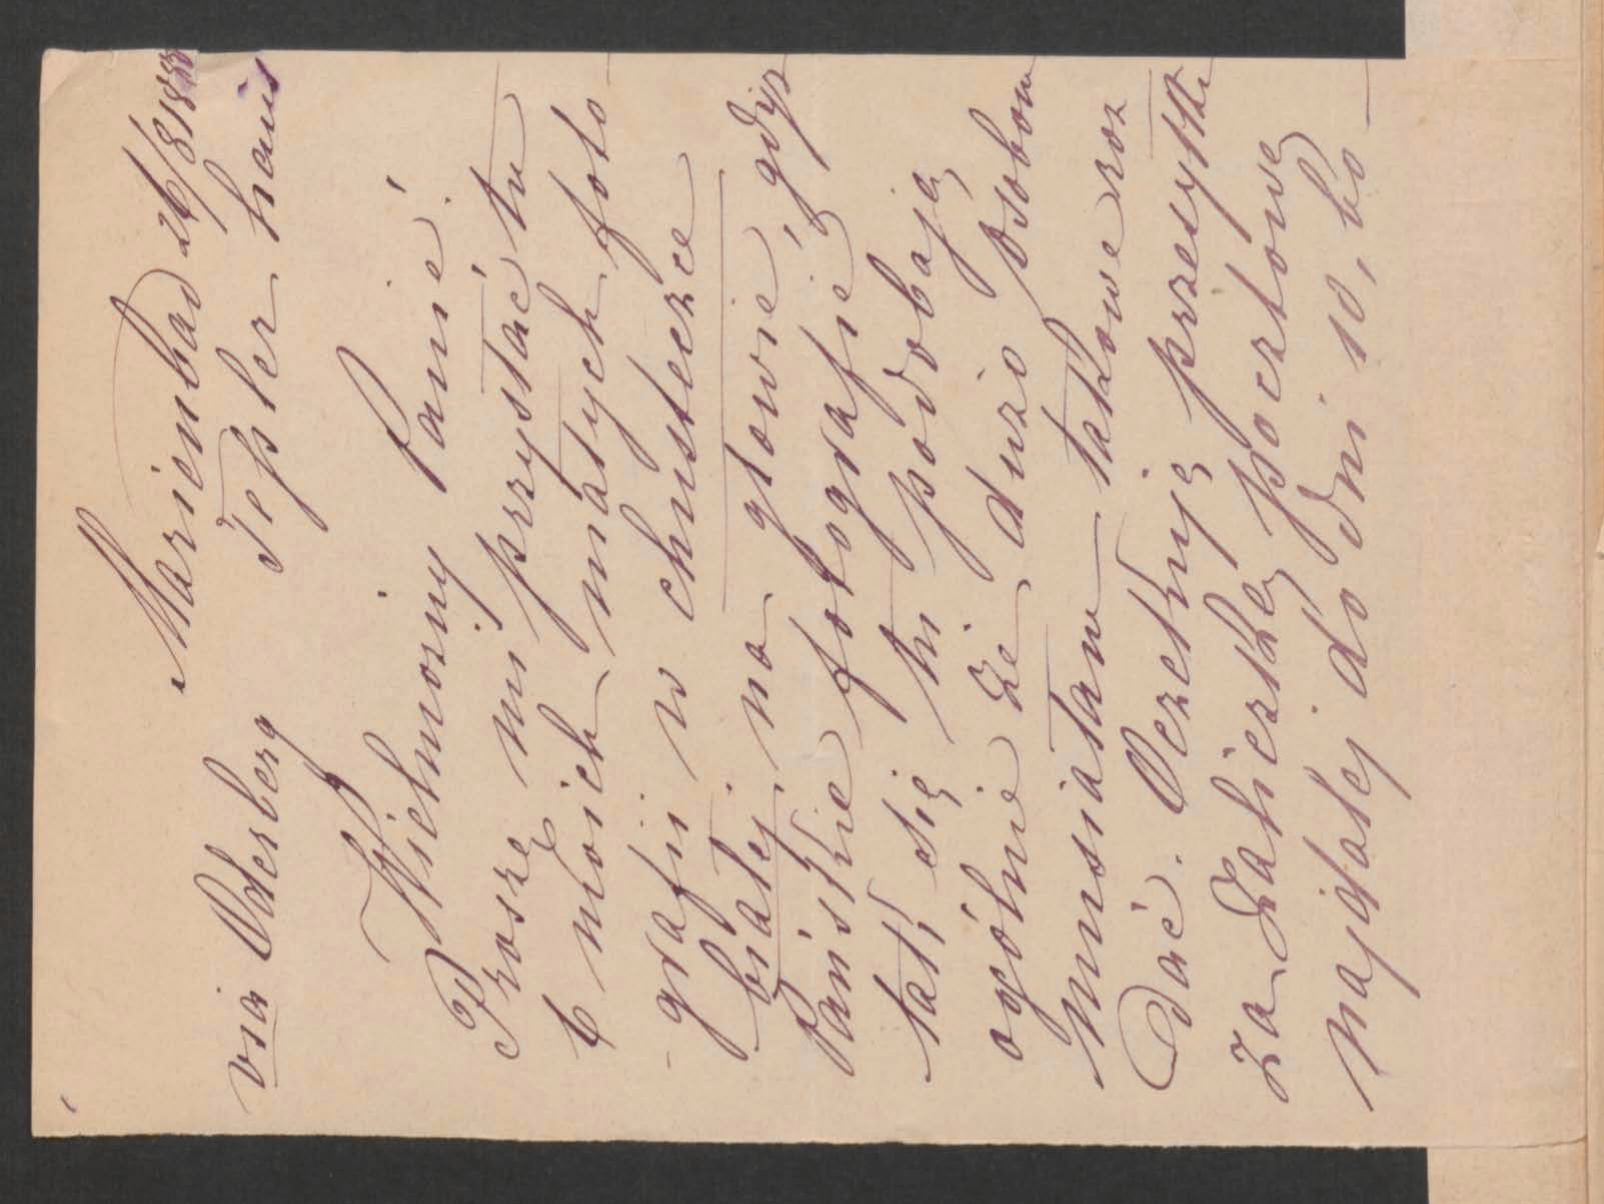 Marienbad 26/8 188
via Oderberg Tepler haus
Wielmożny Panie!
Proszę mi przystać tu
6 moich małych foto
grafij w chusteczce
białej na głowie, gdyż
Pańskie fotografie
tak się tu podobają
ogólnie że dużo osobom
musiałam takowe roz
dać. Oczekuję przesyłki
za zaliczką pocztową
najdalej do dni 10, bo